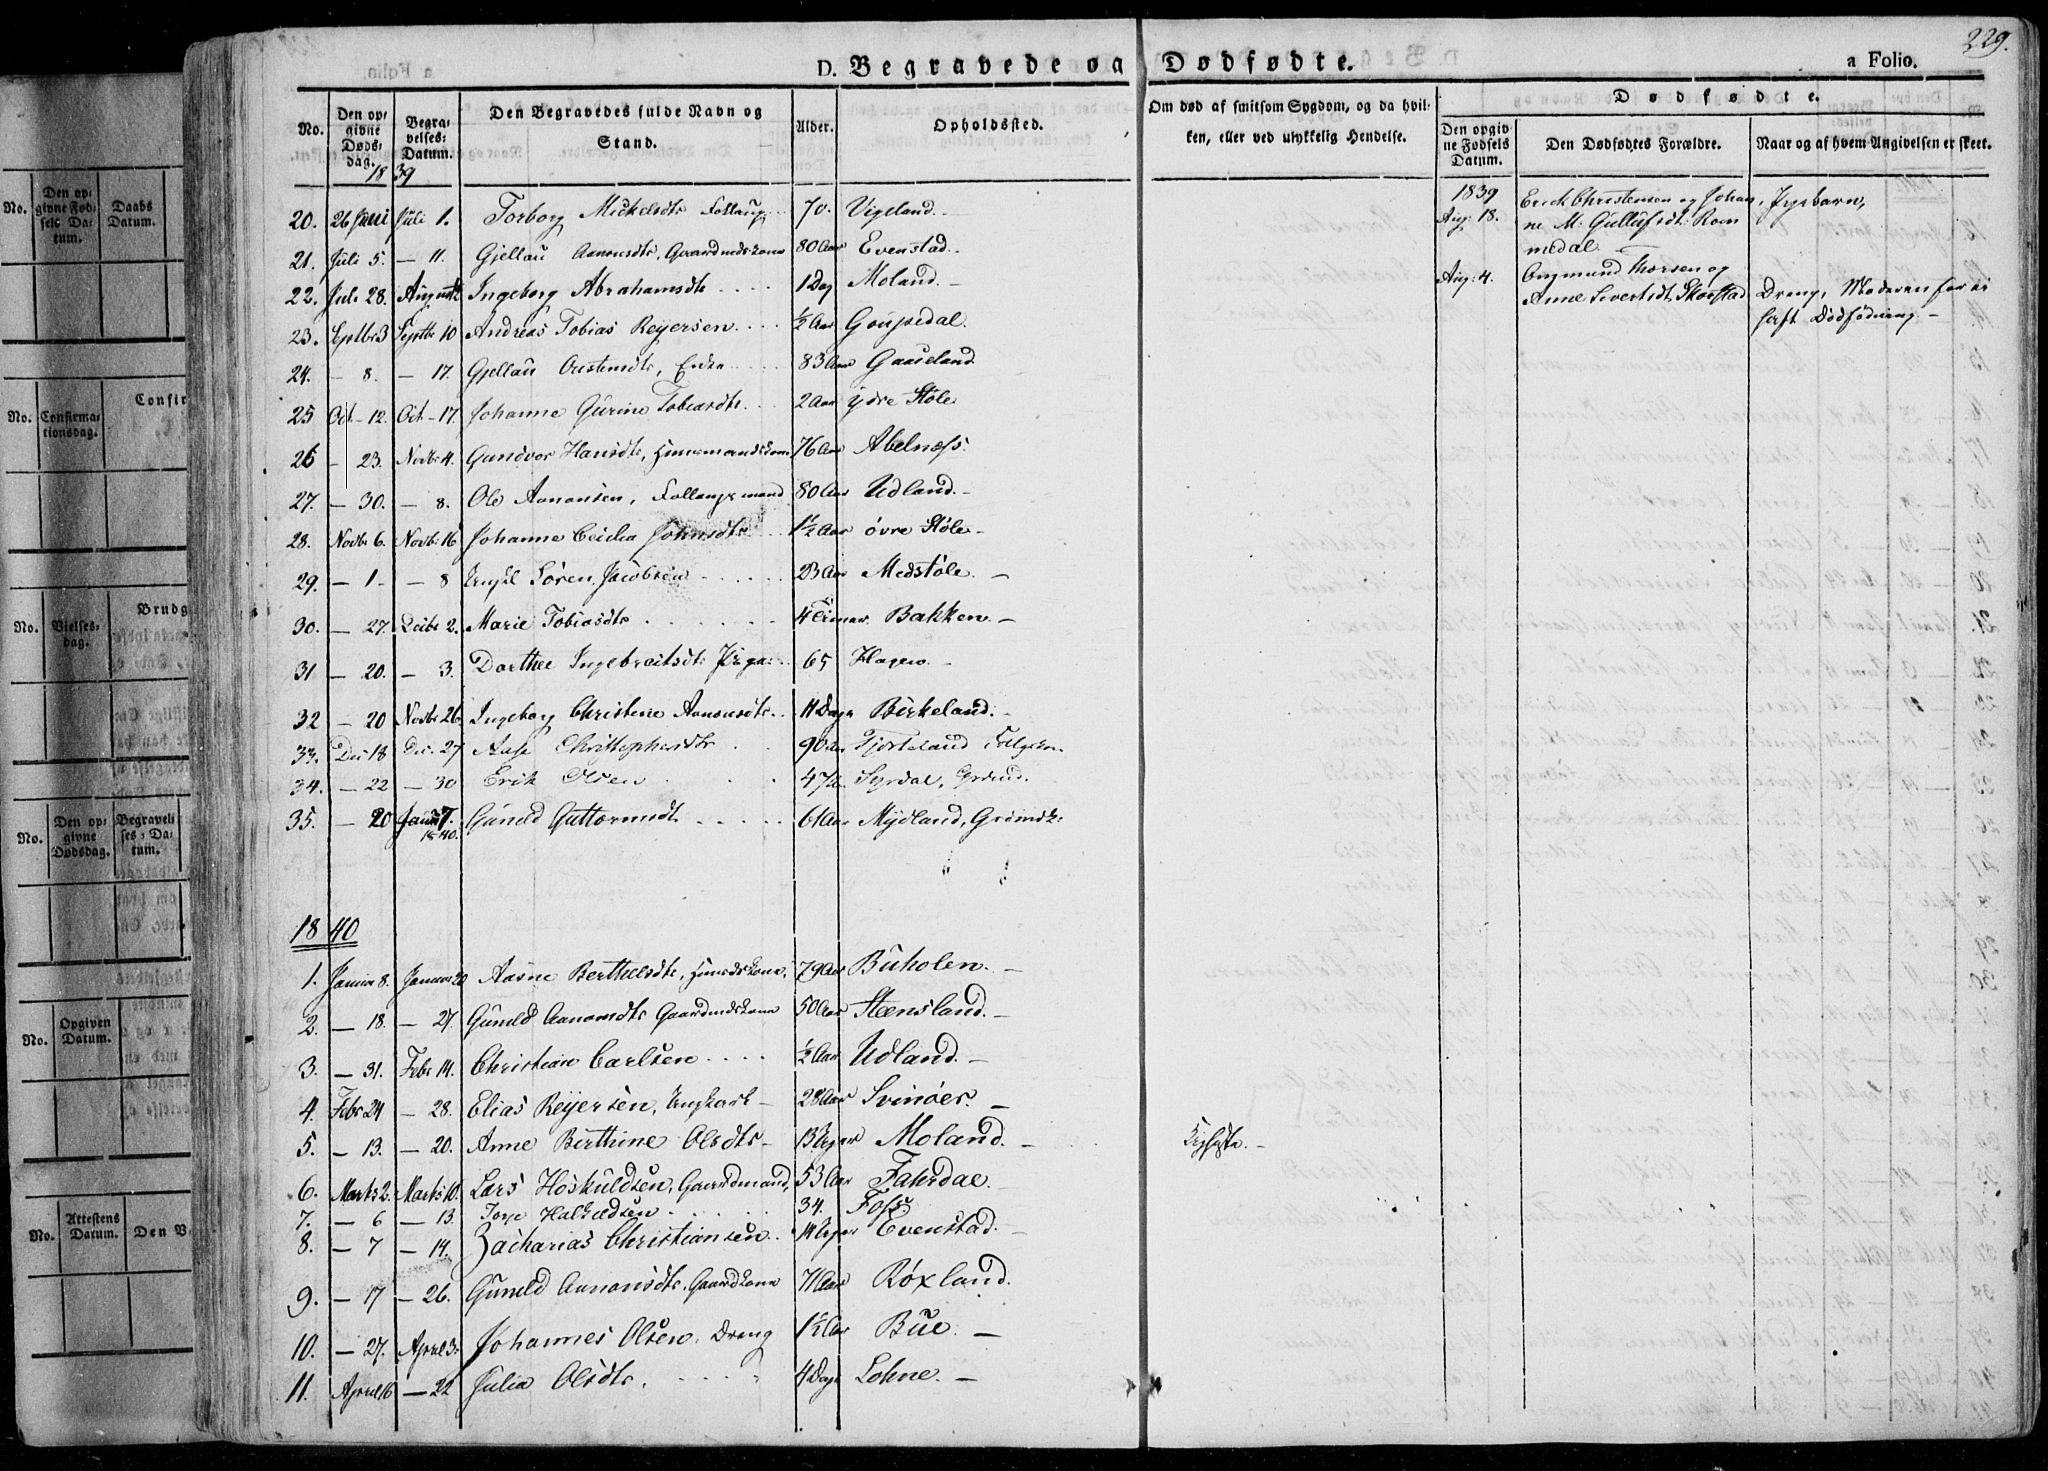 229.
D. Begravede og Dødfødte.
a Folio.
No.
Den opgivne Dødsdag.
Begravelses-Datum.
Den Begravedes fulde Navn og Stand.
Alder.
Opholdssted.
Om død af smitsom Sygdom, og da hvilken, eller ved ulykkelig Hendelse.
Dødfødte.
Den opgivne Fødsels Datum.
Den Dødfødtes Forældre.
Naar og af hvem Angivelsen er skeet.
1839
20. 26 Juni Juli 1. Torborg Mickelsdtr 70. Vigeland.
21. Juli 5. — 11. Gjellau Aanonsdtr, Gaardmdskone 80 Aar Evenstad.
22. Juli 28. August Ingeborg Abrahamsdtr 1 Dag Moland. —
23. Septbr 3 Septbr 10 Andreas Tobias Reyersen 1/2 Aar Goupedal.
24. — 8. — 17. Gjellau Oustensdtr, Enke 83 Aar Gaaseland
25 Oct. 12. Oct. 17. Johanne Gurine Tobiasdtr. 2 Aar ydre Støle
26 — 23. Novbr 4. Gundvor Hansdtr, Huusmandskone 76 Aar Abelnæss.
27. — 30. — 8. Ole Aanonsen, Follaugsmand 80 Aar Udland. —
28. Novbr 6. Novbr 16 Johanne Cecilia Johnsdtr 1 1/2 Aar øvre Støle —
29. — 1 — — 8 Ungk. Søren Jacobsen 23 Aar Medstøle. —
30. — 27. Decbr 2. Marie Tobiasdtr 4 Bakken. —
31 — 20. — 3. Dorthee Ingebreitsdtr Pige 65 Hagen. —
32 — 20 Novbr 26 Ingeborg Christene Aanonsdtr 11 Dage Birkeland. —
33. Dec 18 Dec. 27 Aase Christophersdtr 90 Aar Fjorteland
34. — 22 — 30 Erik Olsen 47 Syrdal, Grdmd.
35. — 20 Janr 7. 1840. Guneld Guttormsdtr 61 Aar Mydland, Grdmdk:
1840
1. Januar 8. Januar 20 Aasne Berthelsdtr, Huusmdskone, 79 Aar Buholen. —
2. — 18. — 27. Guneld Aanonsdtr Gaardmdskone 50 Aar Stensland. —
3. — 31. Febr 14. Christian Carlsen 1/2 Aar Udland. —
4. Febr 24 — 28. Elias Reyersen, Ungkarl — 28 Aar Svinøer. —
5. — 13. — 20. Anne Birthine Olsdtr — 13 Uger Moland. — Kighoste. —
6. Marts 2. Marts 10. Lars Høskuldsen, Gaardmand, 53 Aar Fahrdal —
7. — 6 — 13. Torje Halvordsen 34. Foss
8. — 7 — 14. Zacharias Christiansen 14 Uger Evenstad.
9. — 17 — 26. Guneld Aanonsdtr. Gaardkone 71 Aar Røxland.
10. — 27. April 3. Johannes Olsen, Dreng 1 1/2 Aar Bue. —
11. April 16 — 22 Julia Olsdtr. 4 Dage Lohne. —
1839
Aug. 18. Erick Christensen og Johanne M: Gullufsdtr. Rommedal — Pigebarn,
Aug: 4. Ongmund Thorsen og Anne Sivertsdtr. Skorstad Dreng, Moderen før ei haft Dødfødning —